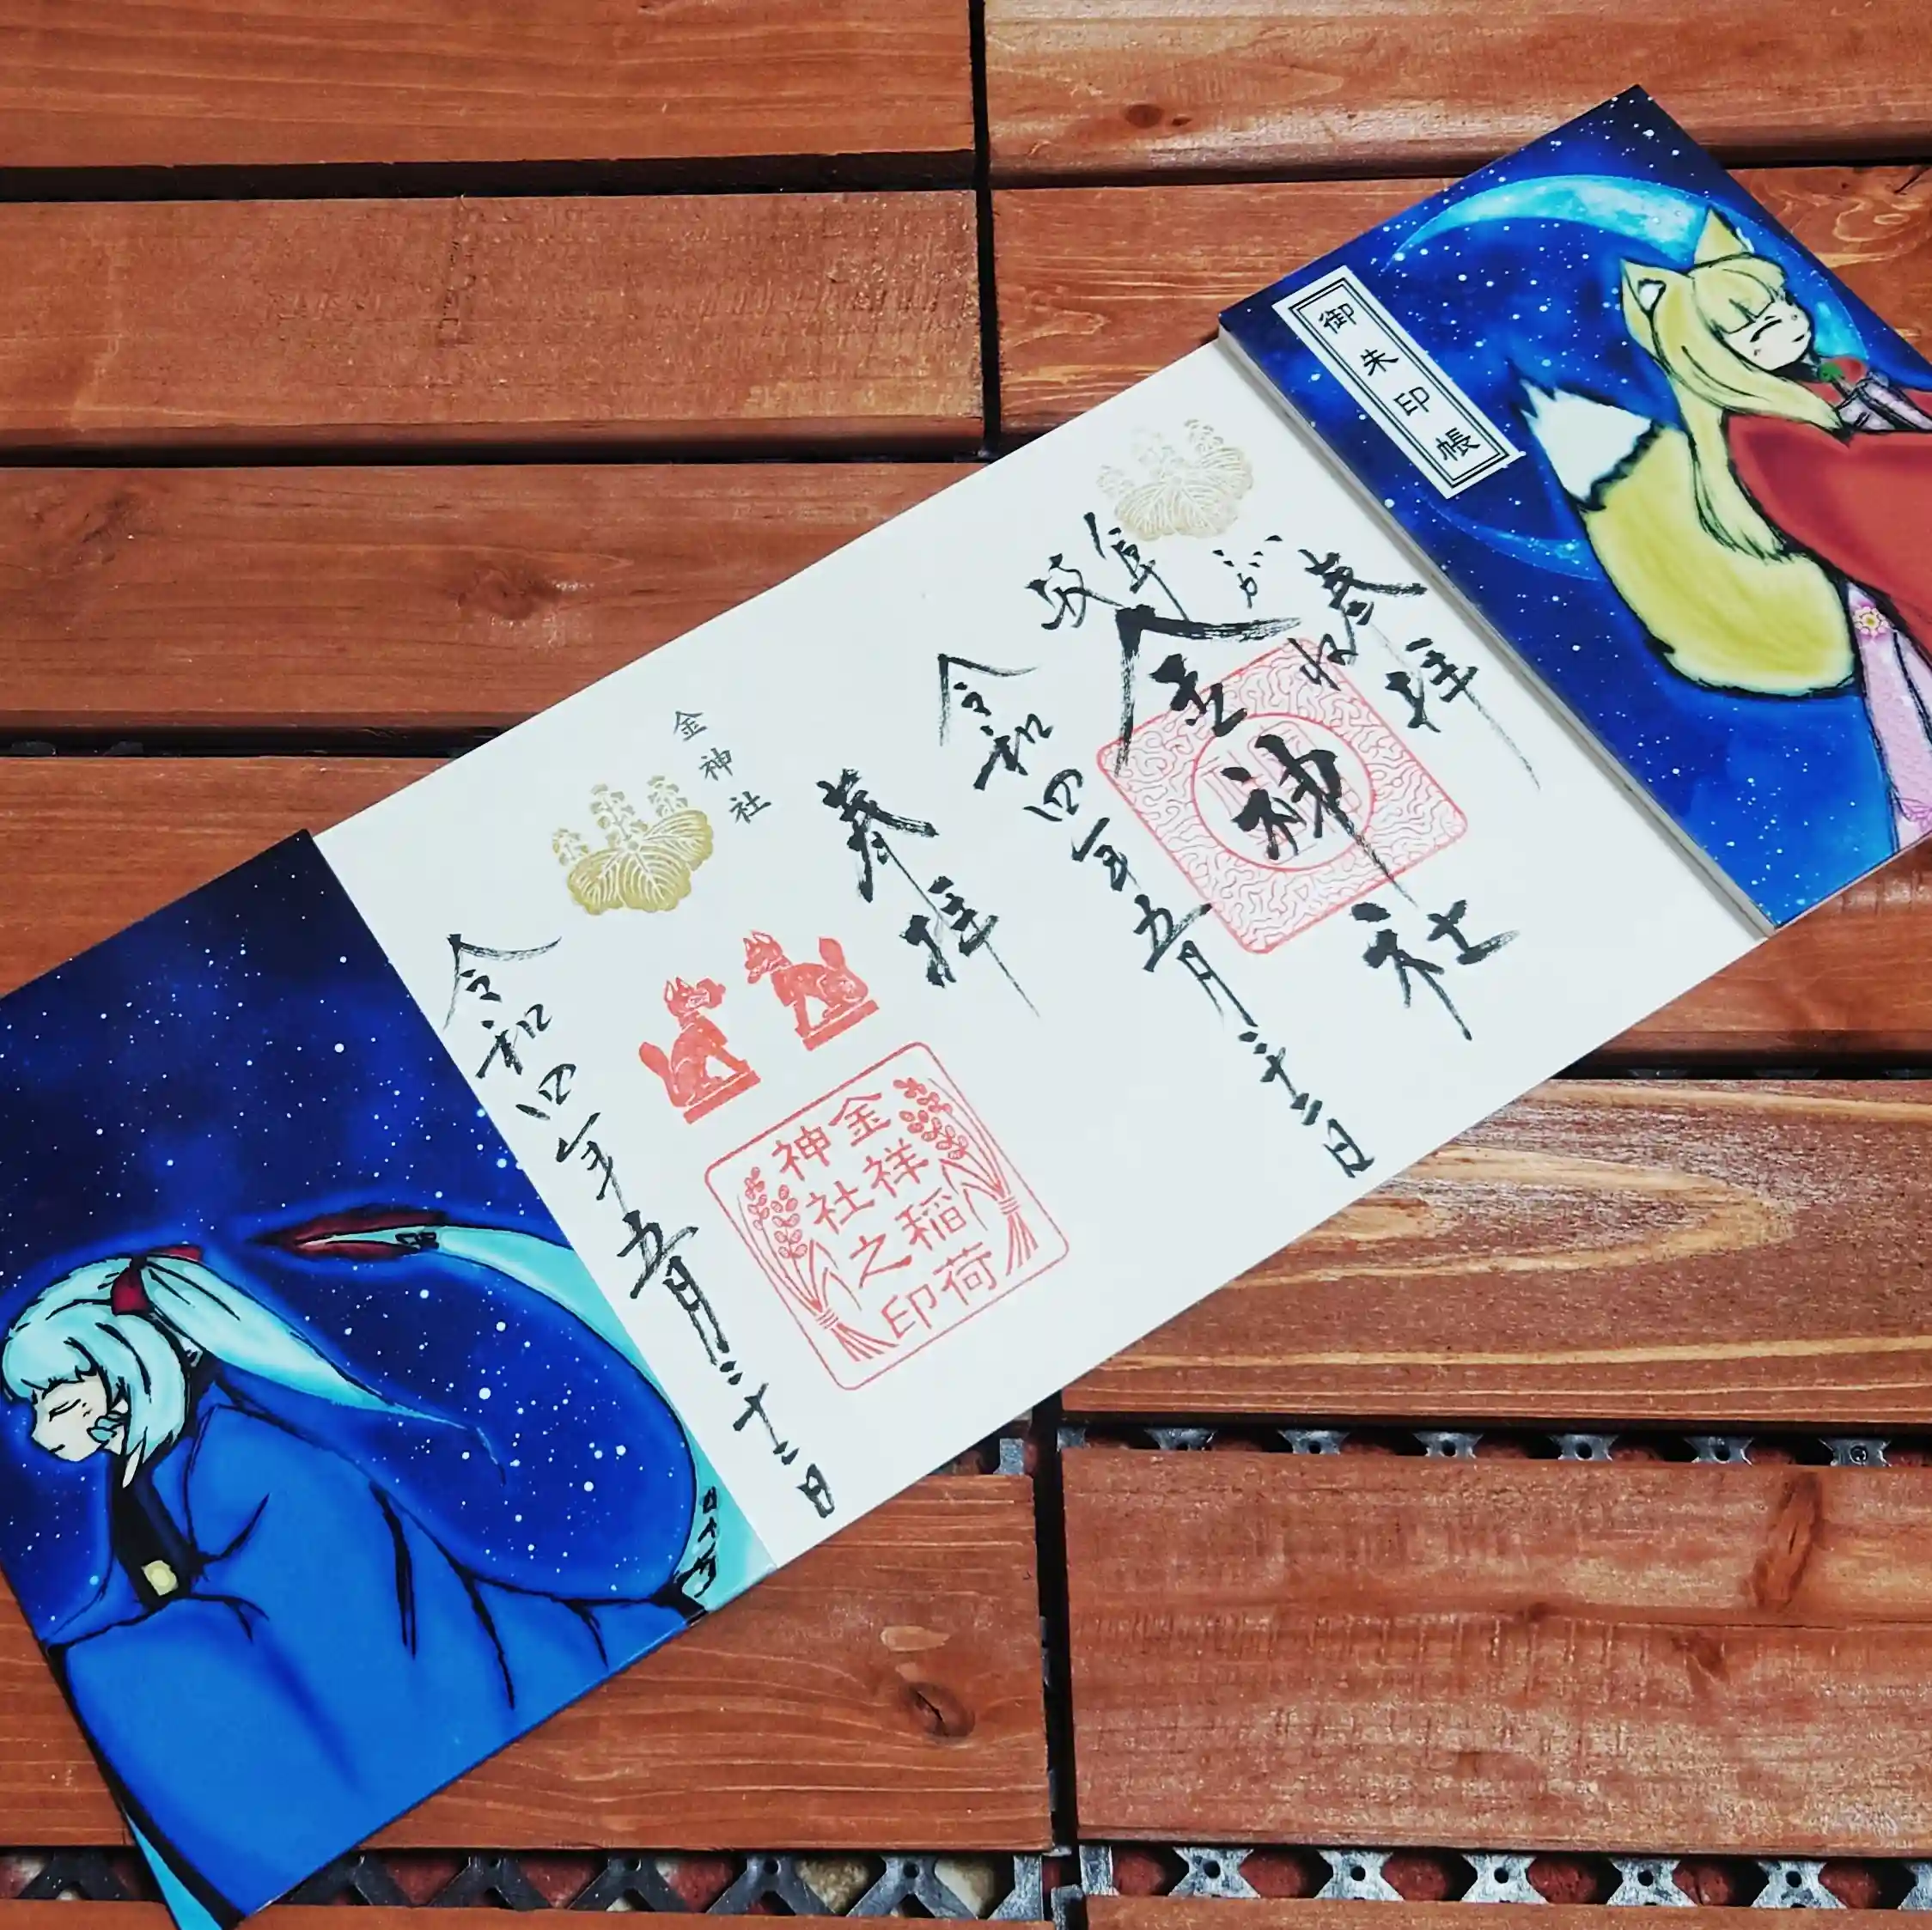 御朱印帳
奉拝
岐阜
金神社
令和四年五月二十二日
奉拝
金神社
金祥稲荷
神社之印
令和四年五月二十二日